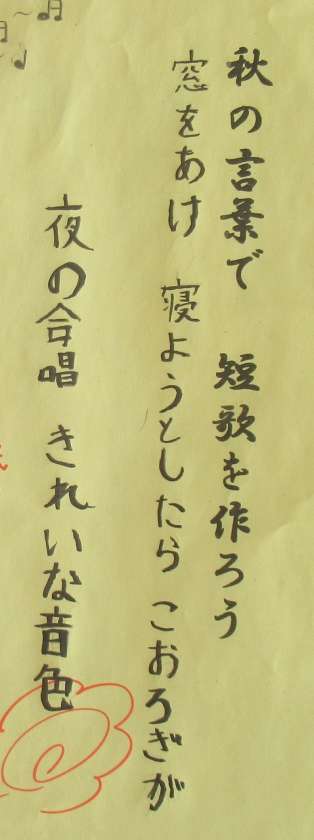 秋の言葉で 短歌を作ろう
窓をあけ 寝ようとしたら こおろぎが
夜の合唱 きれいな音色